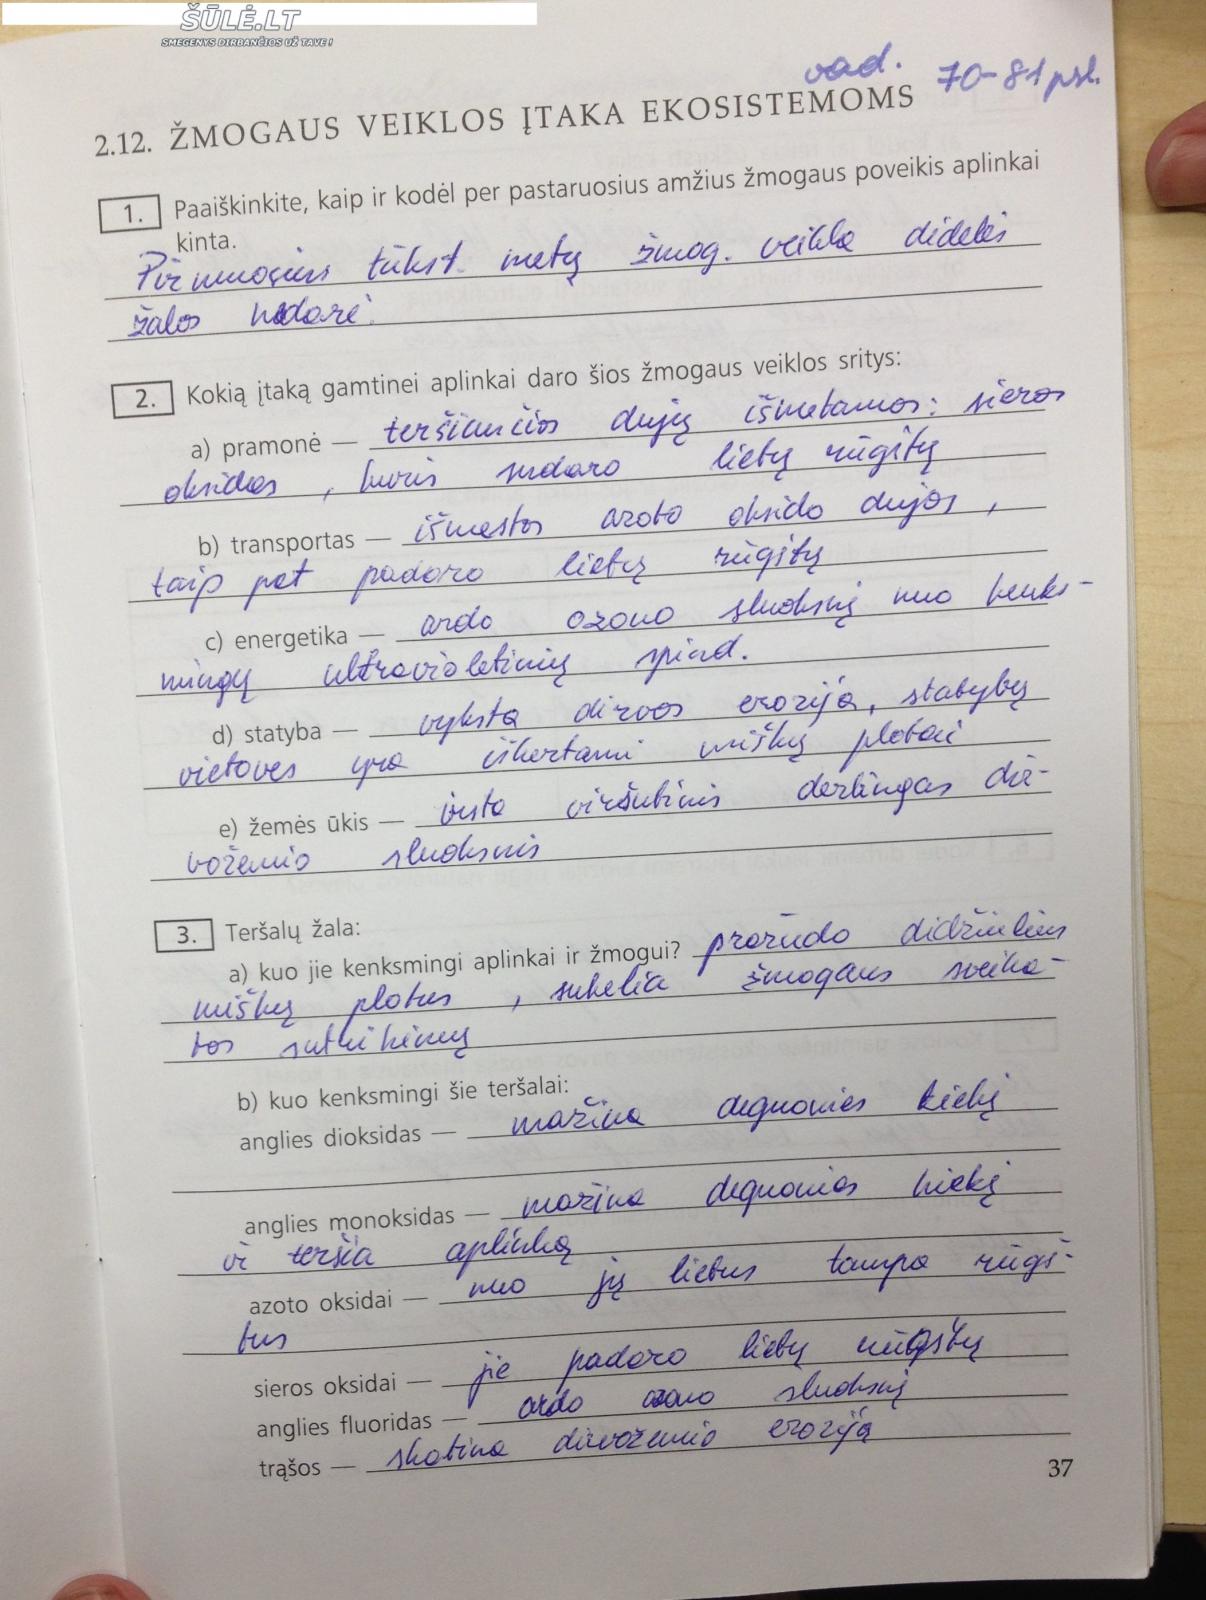 ŠŪLĖ.LT
SMEGENYS DIRBANČIOS UŽ TAVE!
vad. 70-81 psl.
2.12. ŽMOGAUS VEIKLOS ĮTAKA EKOSISTEMOMS
1. Paaiškinkite, kaip ir kodėl per pastaruosius amžius žmogaus poveikis aplinkai
kinta.
Pirmuosius tūkst. metų žmog. veikla didelės
žalos nedarė.
2. Kokią įtaką gamtinei aplinkai daro šios žmogaus veiklos sritys:
a) pramonė — teršiančios dujų išmetamos: sieros
oksidas, kuris sudaro lietų rūgštų
b) transportas — išmestos azoto oksido dujos,
taip pat padaro lietų rūgštų
c) energetika — ardo ozono sluoksnį nuo kenks-
mingų ultravioletinių spind.
d) statyba — vyksta dirvos erozija, statybų
vietoves yra iškertami miškų plotai
e) žemės ūkis — ima viršutinis derlingas dir-
vožemio sluoksnis
3. Teršalų žala:
a) kuo jie kenksmingi aplinkai ir žmogui? pražudo didžiulius
miškų plotus, sukelia žmogaus sveika-
tos sutrikimų
b) kuo kenksmingi šie teršalai:
anglies dioksidas — mažina deguonies kiekį
anglies monoksidas — mažina deguonies kiekį
ir teršia aplinką
azoto oksidai — nuo jų lietus tampa rūgš-
tus
sieros oksidai — jie padaro lietų rūgštų
anglies fluoridas — ardo ozono sluoksnį
trąšos — skatina dirvožemio eroziją
37